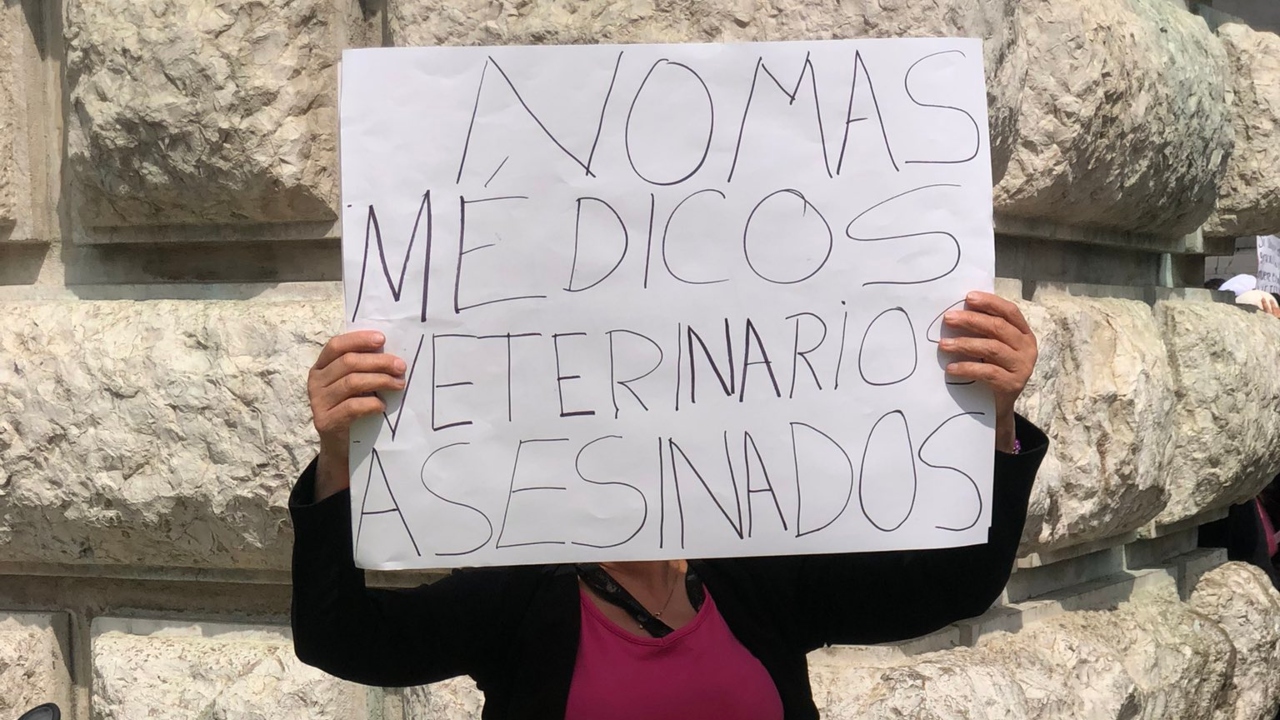 NO MAS
MÉDICOS
VETERINARIOS
ASESINADOS